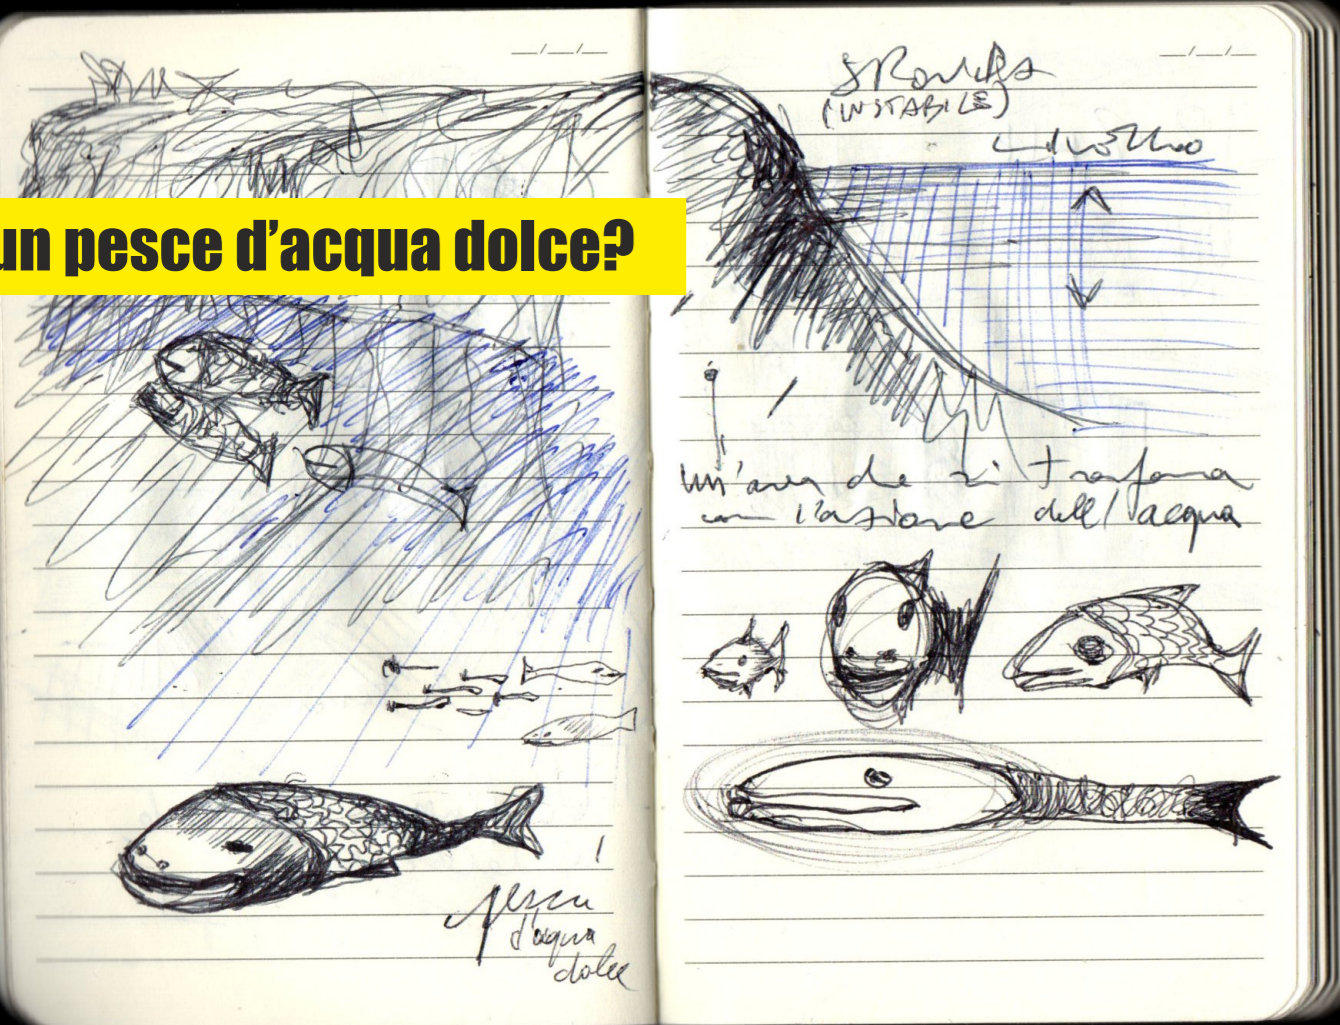 un pesce d'acqua dolce?
pesce
d'acqua
dolce
SPONDA
(INSTABILE)
livello
un'area che si trasforma
con l'azione dell'acqua